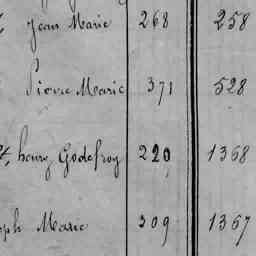 Jean Marie 268 258
Pierre Marie 371 528
henry Godefroy 220 1368
ph Marie 309 1367